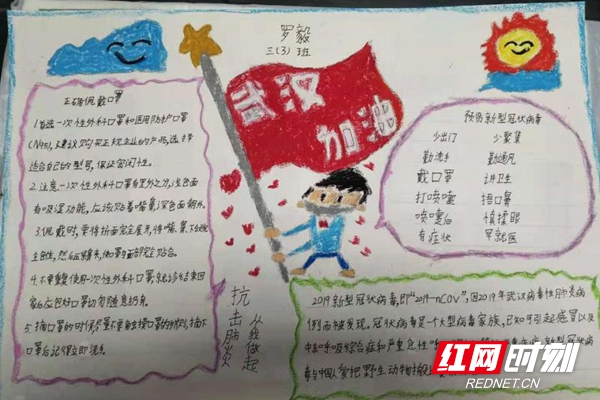 罗毅
三(3)班
武汉
加油
正确佩戴口罩
1.首选一次性外科口罩和医用防护口罩
(N95),建议购买正规企业的产品,选择
适合自己的型号,保证密闭性。
2.注意一次性外科口罩有里外之分,浅色面
有吸湿功能,应该贴着嘴鼻,深色面朝外。
3.佩戴时,要将折面完全展开,将嘴、鼻、下颌
完全包住,然后压紧鼻夹,使口罩与面部完全贴合。
4.不要重复使用一次性外科口罩,就诊结束回
家后应把口罩
5.摘口罩的时候尽量不要触摸口罩的外侧,摘下
口罩后记得立即洗手。
预防新型冠状病毒
少出门 少聚集
勤洗手 勤通风
戴口罩 讲卫生
打喷嚏 捂口鼻
喷嚏后 慎揉眼
有症状 早就医
抗击肺炎
从我做起
2019新型冠状病毒,即"2019-nCoV",因2019年武汉病毒性肺炎病
例而被发现。冠状病毒是一个大型病毒家族,已知可引起感冒以及
中东呼吸综合征和严重急性呼
新型冠状病
毒与中国人爱把野生动物搬上
红网时刻
REDNET.CN